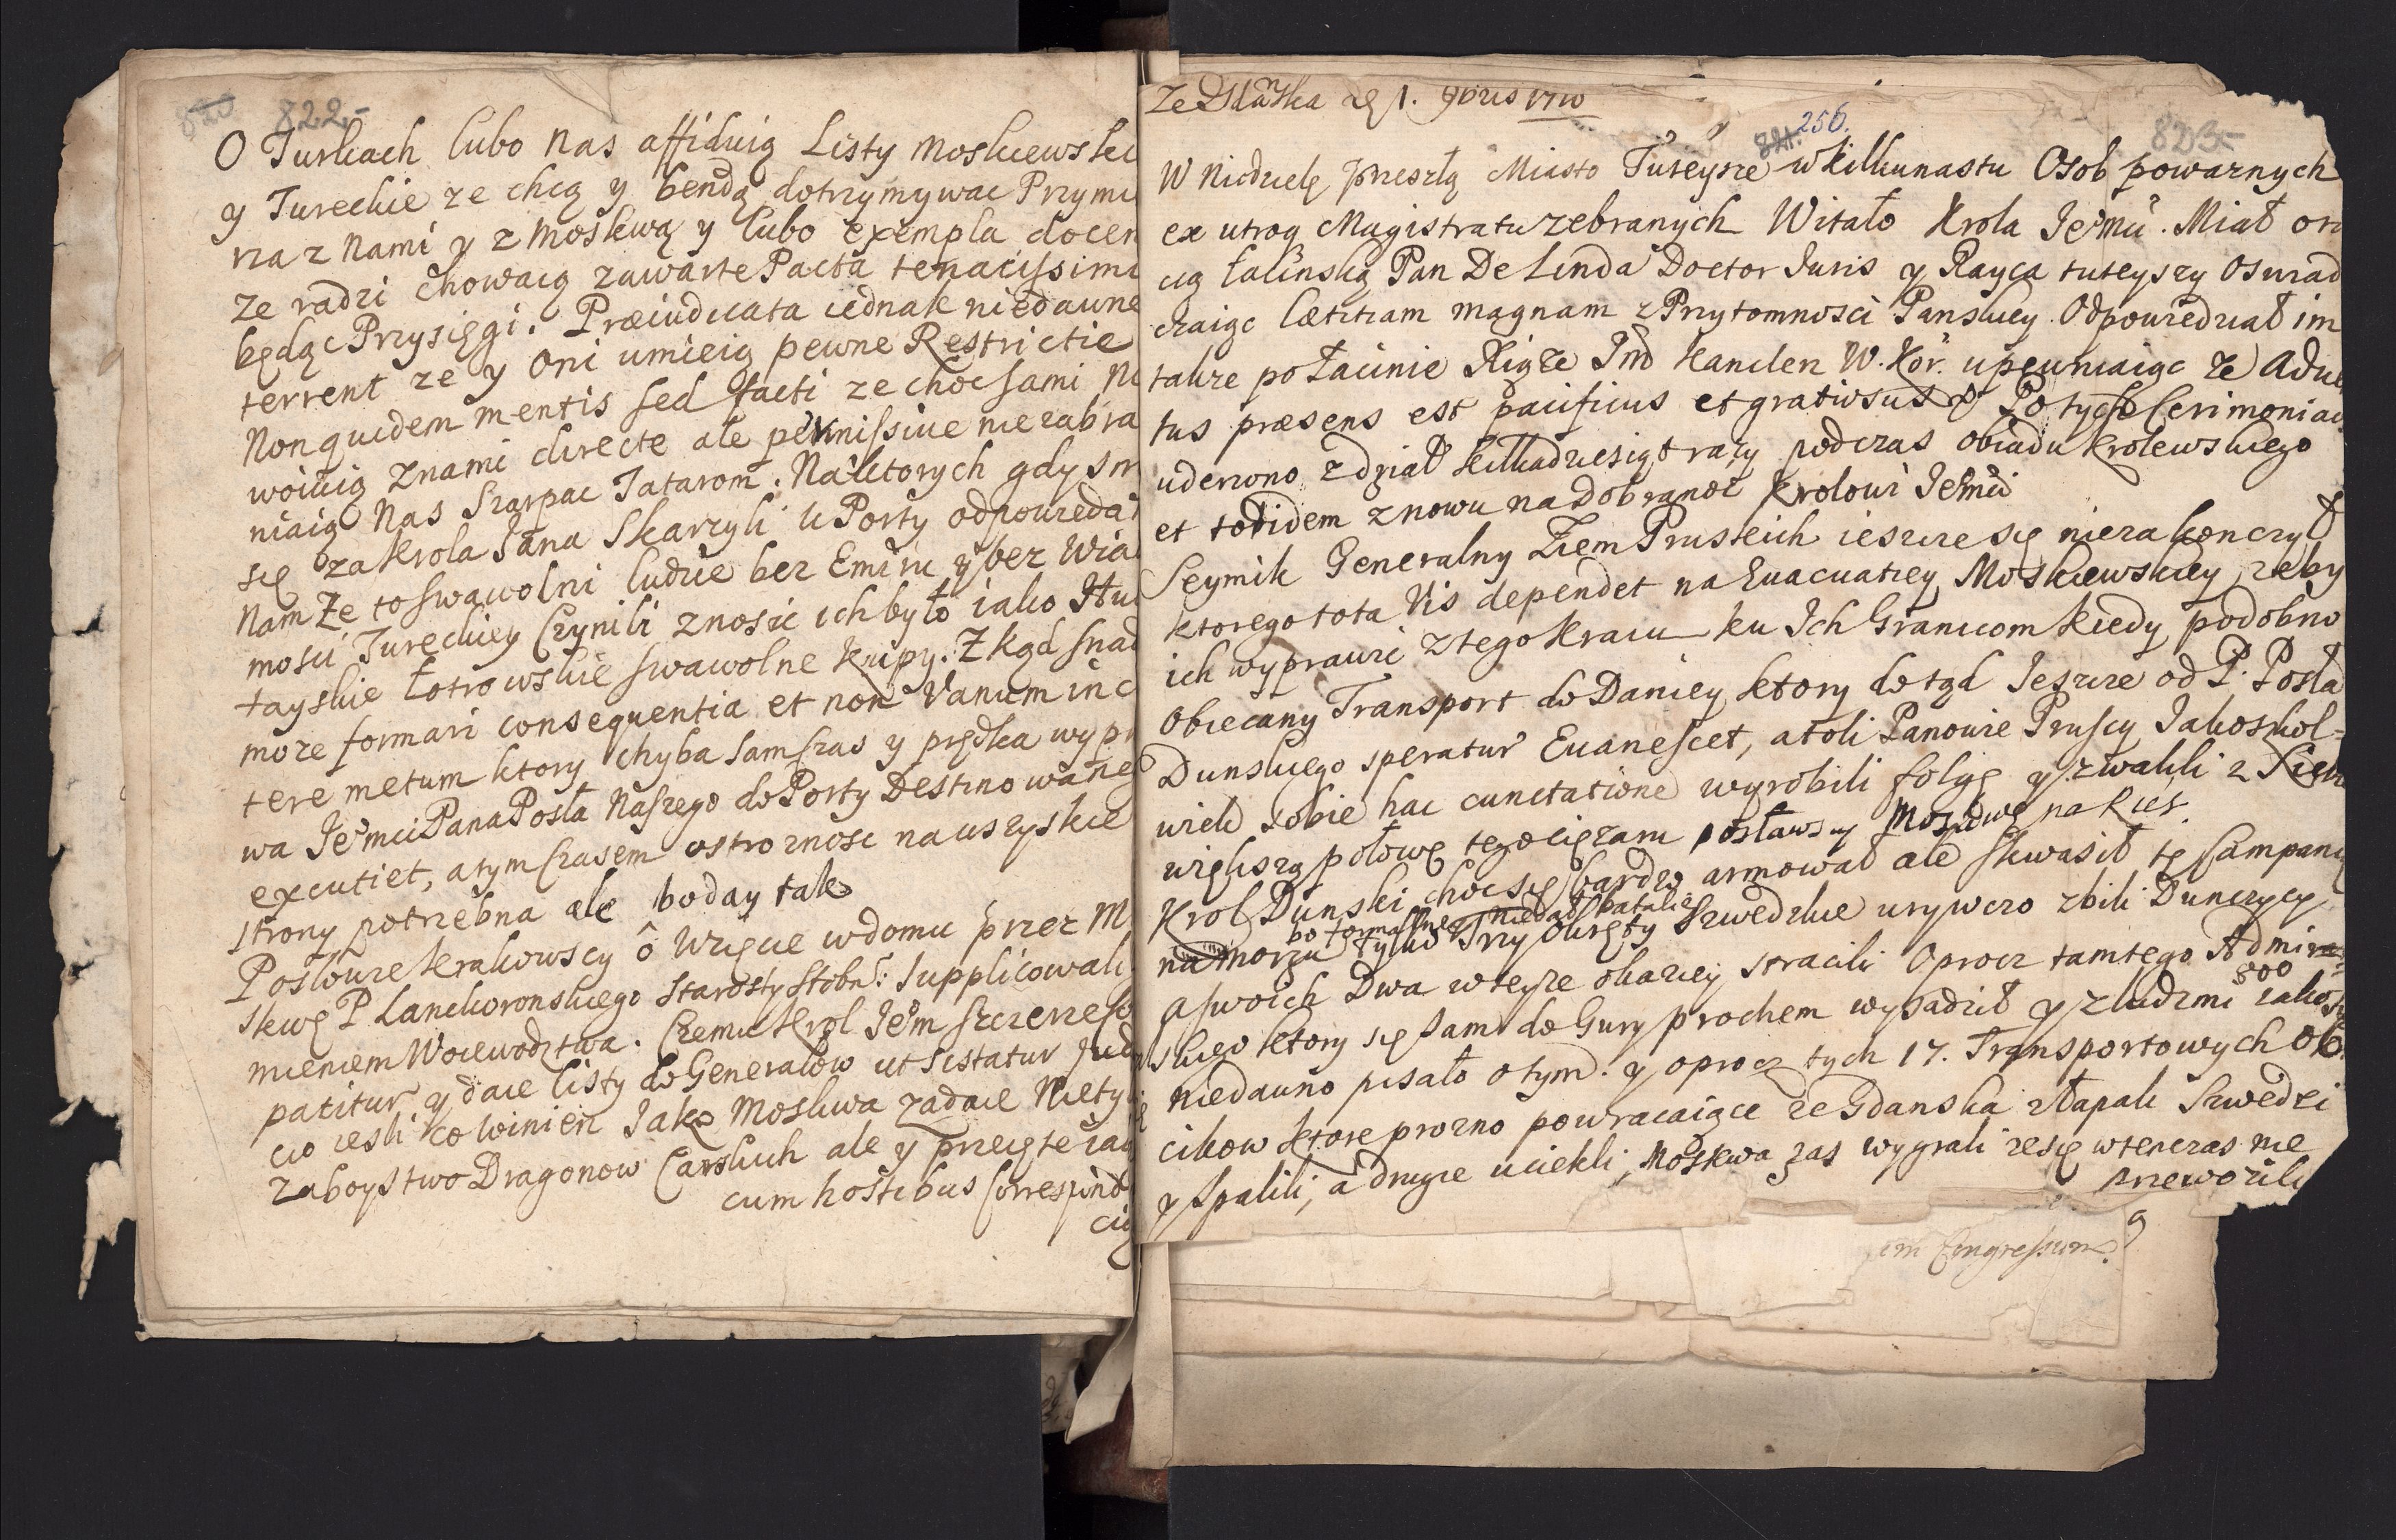 822
O Turkach lubo nas affiduią Listy Moskiewski
y Tureckie ze chcą y bendą dotrzymywac Przymi
rza z Nami y z Moskwą y lubo exempla docen
ze radzi chowaią zawarte Pacta tenacissimi
będąc Przysięgi. Præiudicata iednak niedawne
terrent ze y oni umieią pewne Restrictie
Non quidem mentis sed facti ze choc sami ni
woiuią znami directe ale permissive nie zabra
niaią Nas Szarpac Tatarom. Naktorych gdysm
się za Krola Jana Skarzyli u Porty odpowieda
Nam Ze to swawolni ludzie bez Emiru y bez Wia
mosci Tureckiey Czynili znosic ich było iako Hul
tayskie Łotrowskie swawolne Kupy. Zkąd snad
moze formari consequentia et non Vanum inc
tere metum ktory chyba sam Czas y prętka wypr
wa Jeͦmci Pana Posła Naszego do Porty Destinowane
excutiet, atym Czasem ostroznosc na wszyskie
strony potrzebna ale boday tak
Posłowie Krakowscy ô Wzięcie wdomu przez M
skwę P Lanckoronskiego Starosty Stobn: Supplicowali
mieniem Woiewodztwa. Czemu Krol Jeͦm szczerze
patitur y daie listy do Generałow ut sistatur Judi
cio iesli co winien Jako Moskwa zadaie Niety
zaboystwo Dragonow Carskich ale y przeięte
cum hostibus Correspond
cią
Ze Gdanska d 1. 9bris 1710
256.
823
W Niedzielę przeszłą Miasto Tuteysze w Kilkunastu Osob powaznych
ex utroq Magistratu zebranych Witało Krola Jeͦmci. Miał ora
cią łacinską Pan De Linda Doctor Juris y Rayca tuteyszy oswiad
czaiąc lætitiam magnam z Przytomnosci Panskiey. Odpowiedział im
takze po Łacinie Xiąże Jmc Kanclerz W. Kor. upewniaiąc ze Adue
tus præsens est pacificus et gratiosus. Po tych Cerimoniach
uderzono z dział kilkadziesiąt razy podczas obiadu Krolewskiego
et totidem znowu na Dobranoc Krolowi Jeͦmci
Seymik Generalny Ziem Pruskich ieszcze się niezakonczył
ktorego tota Vis dependet na Euacuatiey Moskiewskiey zeby
ich wyprawic ztego kraiu ku Ich Granicom kiedy podobno
obiecany Transport do Daniey ktory dotąd Jeszcze od P. Posła
Dunskiego speratur Euanescet, atoli Panowie Pruscy Jakoskol-
wiek sobie hac cunctatione wyrobili folgę y zwalili z
większą połowę tego cięzaru posławszy Moskwę na
Krol Dunski choc się bardzo armował ale skwasił tę Campanią
bo formalney niedał batalie
na morzu tylko Trzy Okręty Szwedzkie urywczo zbili Dunczycy
aswoich Dwa w teyze okaziey stracili Oprocz tamtego Admiral-
skiego ktory się sam do Gury prochem wysadził y z ludzmi 800 iakosię
niedawno pisało otym. y oprocz tych 17. Transportowych Okrę
cikow ktore prozno powracaiące ze Gdanska złapali Szwedzi
y spalili, a drugie uciekli, Moskwa zas wygrali zesię wtenczas nie
przewozili
em Congressum?